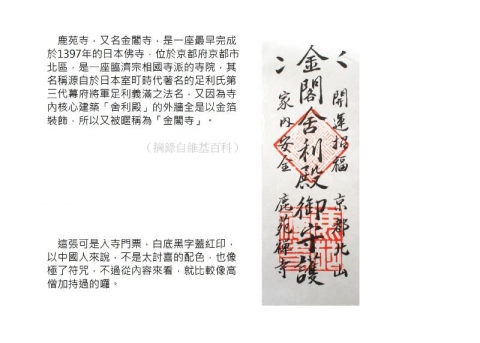 鹿苑寺，又名金閣寺，是一座最早完成
於1397年的日本佛寺，位於京都府京都市
北區，是一座臨濟宗相國寺派的寺院，其
名稱源自於日本室町時代著名的足利氏第
三代幕府將軍足利義滿之法名，又因為寺
內核心建築「舍利殿」的外牆全是以金箔
裝飾，所以又被暱稱為「金閣寺」。
（摘錄自維基百科）
這張可是入寺門票，白底黑字蓋紅印，
以中國人來說，不是太討喜的配色，也像
極了符咒，不過從內容來看，就比較像高
僧加持過的囉。
開運招福 京都北山
金閣舍利殿御守護
家内安全 鹿苑禅寺